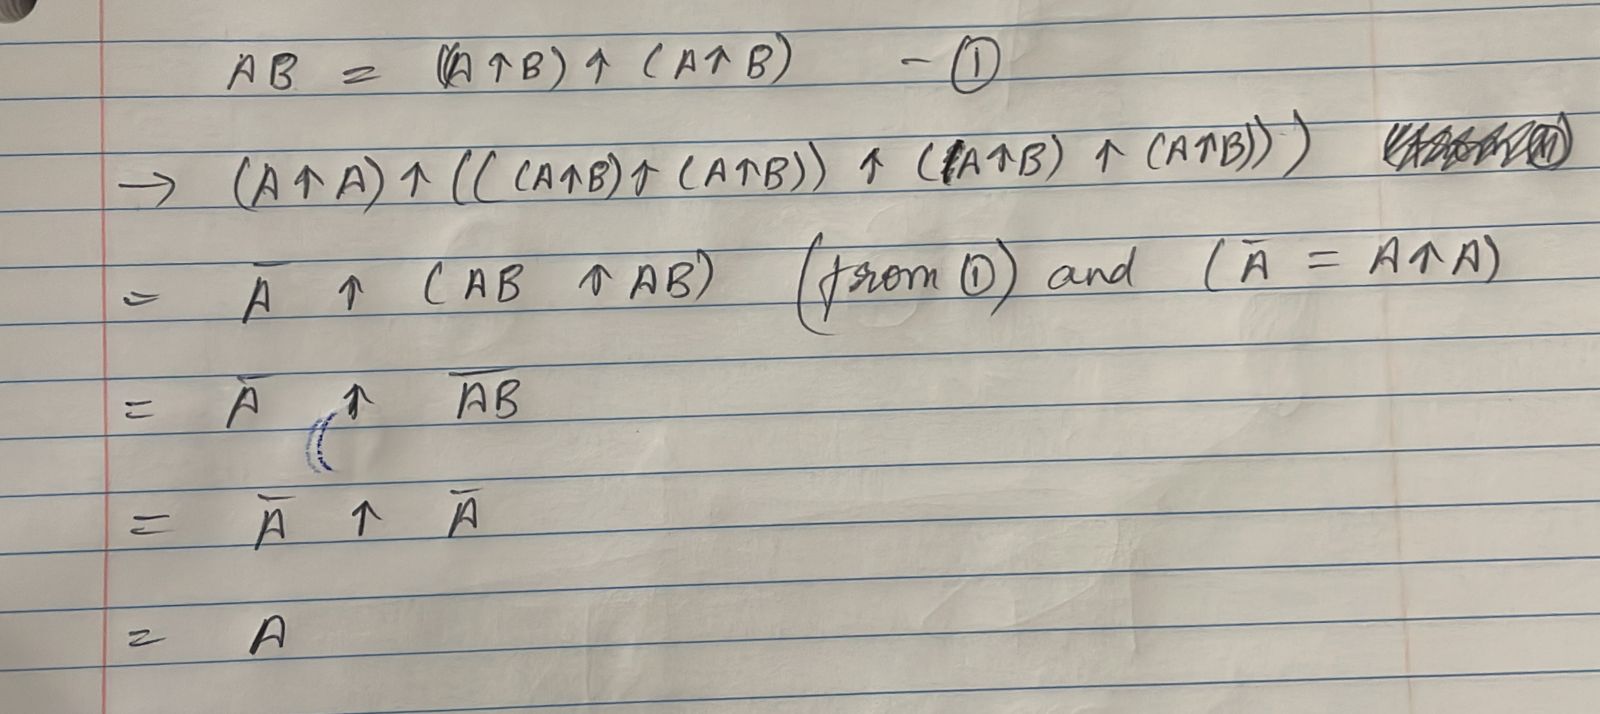 AB = ((A↑B) ↑ (A↑B) - ①
→ (A↑A) ↑ (( (A↑B)↑ (A↑B)) ↑ ((A↑B) ↑ (A↑B)))
= A̅ ↑ (AB ↑ AB) (from ①) and (A̅ = A↑A)
= A̅ ↑ A̅B̅
= A̅ ↑ A̅
= A